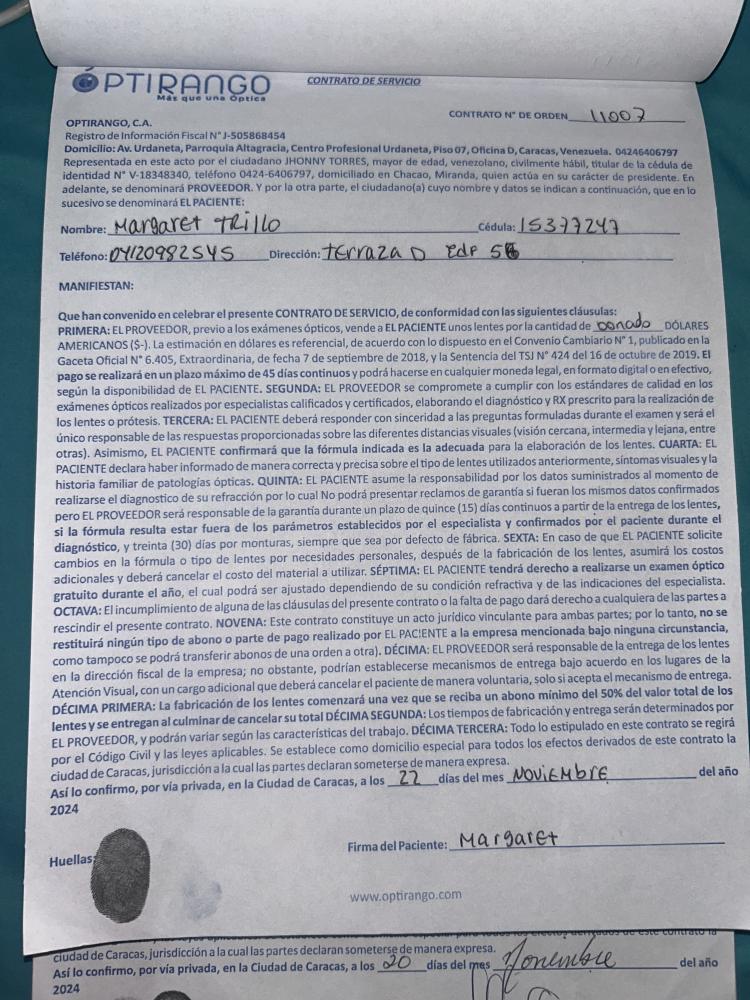 OPTIRANGO
Más que una Óptica
CONTRATO DE SERVICIO
CONTRATO N° DE ORDEN 11007
OPTIRANGO, C.A.
Registro de Información Fiscal N° J-505868454
Domicilio: Av. Urdaneta, Parroquia Altagracia, Centro Profesional Urdaneta, Piso 07, Oficina D, Caracas, Venezuela. 04246406797
Representada en este acto por el ciudadano JHONNY TORRES, mayor de edad, venezolano, civilmente hábil, titular de la cédula de
identidad N° V-18348340, teléfono 0424-6406797, domiciliado en Chacao, Miranda, quien actúa en su carácter de presidente. En
adelante, se denominará PROVEEDOR. Y por la otra parte, el ciudadano(a) cuyo nombre y datos se indican a continuación, que en lo
sucesivo se denominará EL PACIENTE:
Nombre: Margaret Trillo Cédula: 15377247
Teléfono: 04120982545 Dirección: terraza D Edf 5
MANIFIESTAN:
Que han convenido en celebrar el presente CONTRATO DE SERVICIO, de conformidad con las siguientes cláusulas:
PRIMERA: EL PROVEEDOR, previo a los exámenes ópticos, vende a EL PACIENTE unos lentes por la cantidad de Donado DÓLARES
AMERICANOS ($-). La estimación en dólares es referencial, de acuerdo con lo dispuesto en el Convenio Cambiario N° 1, publicado en la
Gaceta Oficial N° 6.405, Extraordinaria, de fecha 7 de septiembre de 2018, y la Sentencia del TSJ N° 424 del 16 de octubre de 2019. El
pago se realizará en un plazo máximo de 45 días continuos y podrá hacerse en cualquier moneda legal, en formato digital o en efectivo,
según la disponibilidad de EL PACIENTE. SEGUNDA: EL PROVEEDOR se compromete a cumplir con los estándares de calidad en los
exámenes ópticos realizados por especialistas calificados y certificados, elaborando el diagnóstico y RX prescrito para la realización de
los lentes o prótesis. TERCERA: EL PACIENTE deberá responder con sinceridad a las preguntas formuladas durante el examen y será el
único responsable de las respuestas proporcionadas sobre las diferentes distancias visuales (visión cercana, intermedia y lejana, entre
otras). Asimismo, EL PACIENTE confirmará que la fórmula indicada es la adecuada para la elaboración de los lentes. CUARTA: EL
PACIENTE declara haber informado de manera correcta y precisa sobre el tipo de lentes utilizados anteriormente, síntomas visuales y la
historia familiar de patologías ópticas. QUINTA: EL PACIENTE asume la responsabilidad por los datos suministrados al momento de
realizarse el diagnostico de su refracción por lo cual No podrá presentar reclamos de garantía si fueran los mismos datos confirmados
pero EL PROVEEDOR será responsable de la garantía durante un plazo de quince (15) días continuos a partir de la entrega de los lentes,
si la fórmula resulta estar fuera de los parámetros establecidos por el especialista y confirmados por el paciente durante el
diagnóstico, y treinta (30) días por monturas, siempre que sea por defecto de fábrica. SEXTA: En caso de que EL PACIENTE solicite
cambios en la fórmula o tipo de lentes por necesidades personales, después de la fabricación de los lentes, asumirá los costos
adicionales y deberá cancelar el costo del material a utilizar. SÉPTIMA: EL PACIENTE tendrá derecho a realizarse un examen óptico
gratuito durante el año, el cual podrá ser ajustado dependiendo de su condición refractiva y de las indicaciones del especialista.
OCTAVA: El incumplimiento de alguna de las cláusulas del presente contrato o la falta de pago dará derecho a cualquiera de las partes a
rescindir el presente contrato. NOVENA: Este contrato constituye un acto jurídico vinculante para ambas partes; por lo tanto, no se
restituirá ningún tipo de abono o parte de pago realizado por EL PACIENTE a la empresa mencionada bajo ninguna circunstancia,
como tampoco se podrá transferir abonos de una orden a otra). DÉCIMA: EL PROVEEDOR será responsable de la entrega de los lentes
en la dirección fiscal de la empresa; no obstante, podrían establecerse mecanismos de entrega bajo acuerdo en los lugares de la
Atención Visual, con un cargo adicional que deberá cancelar el paciente de manera voluntaria, solo si acepta el mecanismo de entrega.
DÉCIMA PRIMERA: La fabricación de los lentes comenzará una vez que se reciba un abono mínimo del 50% del valor total de los
lentes y se entregan al culminar de cancelar su total DÉCIMA SEGUNDA: Los tiempos de fabricación y entrega serán determinados por
EL PROVEEDOR, y podrán variar según las características del trabajo. DÉCIMA TERCERA: Todo lo estipulado en este contrato se regirá
por el Código Civil y las leyes aplicables. Se establece como domicilio especial para todos los efectos derivados de este contrato la
ciudad de Caracas, jurisdicción a la cual las partes declaran someterse de manera expresa.
Así lo confirmo, por vía privada, en la Ciudad de Caracas, a los 22 días del mes NOVIEMBRE del año
2024
Huellas:
Firma del Paciente: Margaret
www.optirango.com
ciudad de Caracas, jurisdicción a la cual las partes declaran someterse de manera expresa.
Así lo confirmo, por vía privada, en la Ciudad de Caracas, a los 20 días del mes Noviembre del año
2024